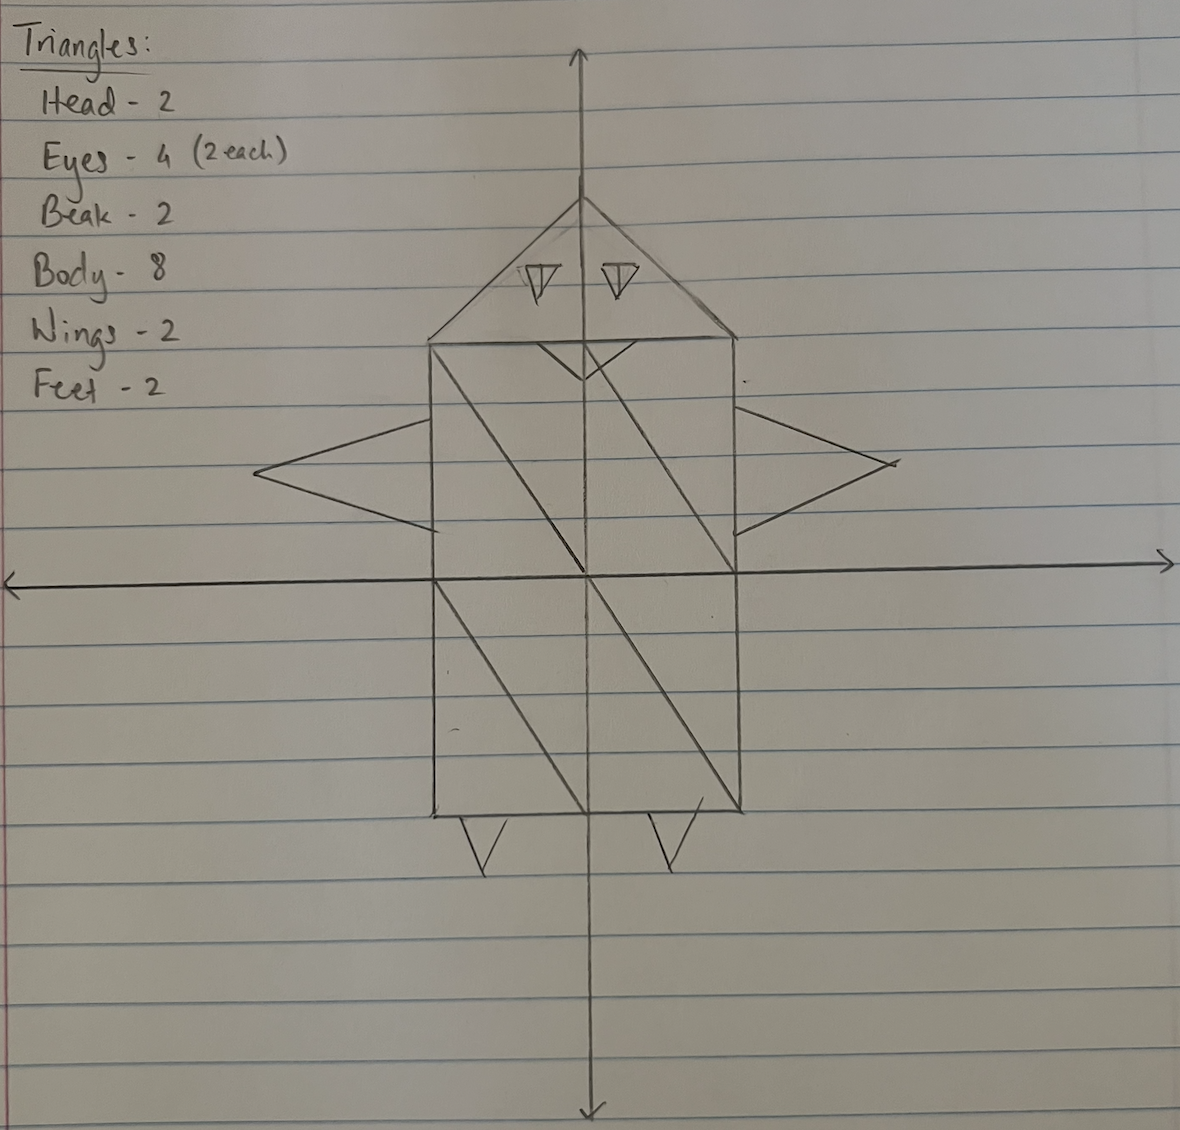 Triangles:
Head - 2
Eyes - 4 (2 each)
Beak - 2
Body - 8
Wings - 2
Feet - 2